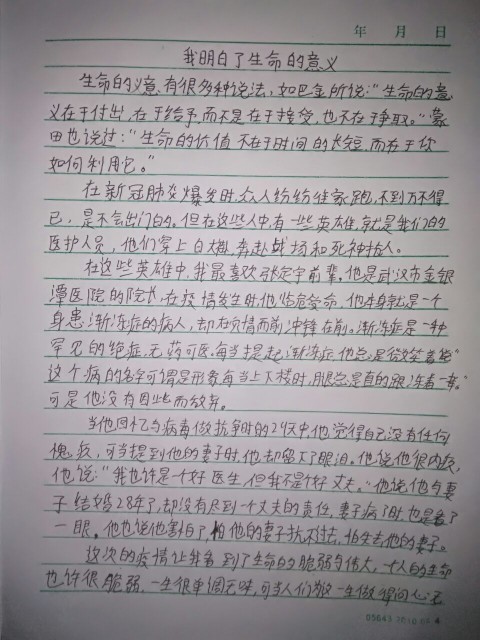 年 月 日
我明白了生命的意义
生命的意义,有很多种说法,如巴金所说:“生命的意
义在于付出,在于给予,而不是在于接受,也不在于争取。”蒙
田也说过:“生命的价值不在于时间的长短,而在于你
如何利用它。”
在新冠肺炎爆发时,众人纷纷往家跑,不到万不得
已,是不会出门的。但在这些人中,有一些英雄,就是我们的
医护人员,他们穿上白大褂,奔赴战场和死神抢人。
在这些英雄中,我最喜欢张定宇前辈。他是武汉市金银
潭医院的院长,在疫情发生时,他临危受命,他本身就是一个
身患渐冻症的病人,却在疫情面前冲锋在前。渐冻症是一种
罕见的绝症,无药可医,每当提起渐冻症他总是
这个病的名字可谓是形象,每当上下楼时,腿总是真的跟冻着一样。
可是他没有因此而放弃。
当他回忆与病毒做抗争时的24天中,他觉得自己没有任何
愧疚,可当提到他的妻子时,他却留下了眼泪。他说他很内疚,
他说:“我也许是一个好医生,但我不是个好丈夫。”他说他与妻
子结婚28年了,却没有尽到一个丈夫的责任,妻子病了时,也是看了
一眼。他也说他害怕了,怕他的妻子扛不过去,怕失去他的妻子。
这次的疫情让我看到了生命的脆弱与伟大,一个人的生命
也许很脆弱,一生很单调无味,可当人们将这一生做得问心无
05643 2010